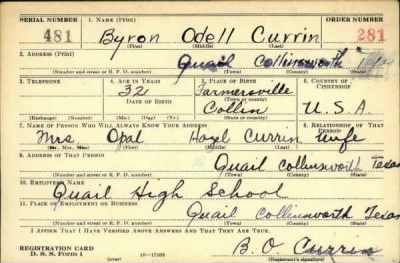 SERIAL NUMBER 1. NAME (Print) ORDER NUMBER
481 Byron Odell Currin 281
(First) (Middle) (Last)
2. ADDRESS (Print)
Quail Collinsworth
(Number and street or R. F. D. number) (Town) (County) (State)
3. TELEPHONE 4. AGE IN YEARS 5. PLACE OF BIRTH 6. COUNTRY OF CITIZENSHIP
32 Farmersville
DATE OF BIRTH (Town or county)
Collin U.S.A.
(Exchange) (Number) (Mo.) (Day) (Yr.) (State or country)
7. NAME OF PERSON WHO WILL ALWAYS KNOW YOUR ADDRESS 8. RELATIONSHIP OF THAT PERSON
Mrs. Opal Hazel Currin wife
(Mr., Mrs., Miss) (First) (Middle) (Last)
9. ADDRESS OF THAT PERSON
Quail Collinsworth Texas
(Number and street or R. F. D. number) (Town) (County) (State)
10. EMPLOYER'S NAME
Quail High School
11. PLACE OF EMPLOYMENT OR BUSINESS
Quail Collinsworth Texas
(Number and street or R. F. D. number) (Town) (County) (State)
I AFFIRM THAT I HAVE VERIFIED ABOVE ANSWERS AND THAT THEY ARE TRUE.
REGISTRATION CARD B. O. Currin
D. S. S. Form 1 (over) 16—17105 (Registrant's signature)